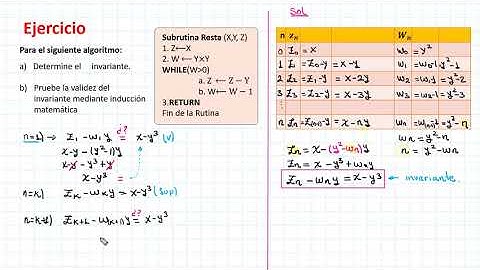 Ejercicio
Para el siguiente algoritmo:
a) Determine el invariante.
b) Pruebe la validez del
invariante mediante inducción
matemática
Subrutina Resta (X,Y, Z)
1. Z⟵X
2. W ⟵ Y×Y
WHILE(W>0)
a. Z ⟵ Z − Y
b. W⟵ W − 1
3.RETURN
Fin de la Rutina
n=1) ⇒ Z₁ - w₁y =¿? x-y³ (V)
x-y-(y²-1)y
x-y-y³+y
x-y³
n=k) Zₖ - wₖy = x-y³ (Sup)
n=k+1) Zₖ₊₁ - w₍ₖ₊₁₎y =¿? x-y³
Sol
n zₙ Wₙ
0 Z₀ = x w₀ = y²
1 Z₁ = Z₀-y = x-y w₁ = w₀-1 = y²-1
2 Z₂ = Z₁-y = x-2y w₂ = w₁-1 = y²-2
3 Z₃ = Z₂-y = x-3y w₃ = w₂-1 = y²-3
⋮
n Zₙ = Z₍ₙ₋₁₎-y = x-ny wₙ = w₍ₙ₋₁₎-1 = y²-n
wₙ = y²-n
n = y²-wₙ
Zₙ = x-(y²-wₙ)y
Zₙ = x - y³ + wₙy
Zₙ - wₙy = x-y³ invariante